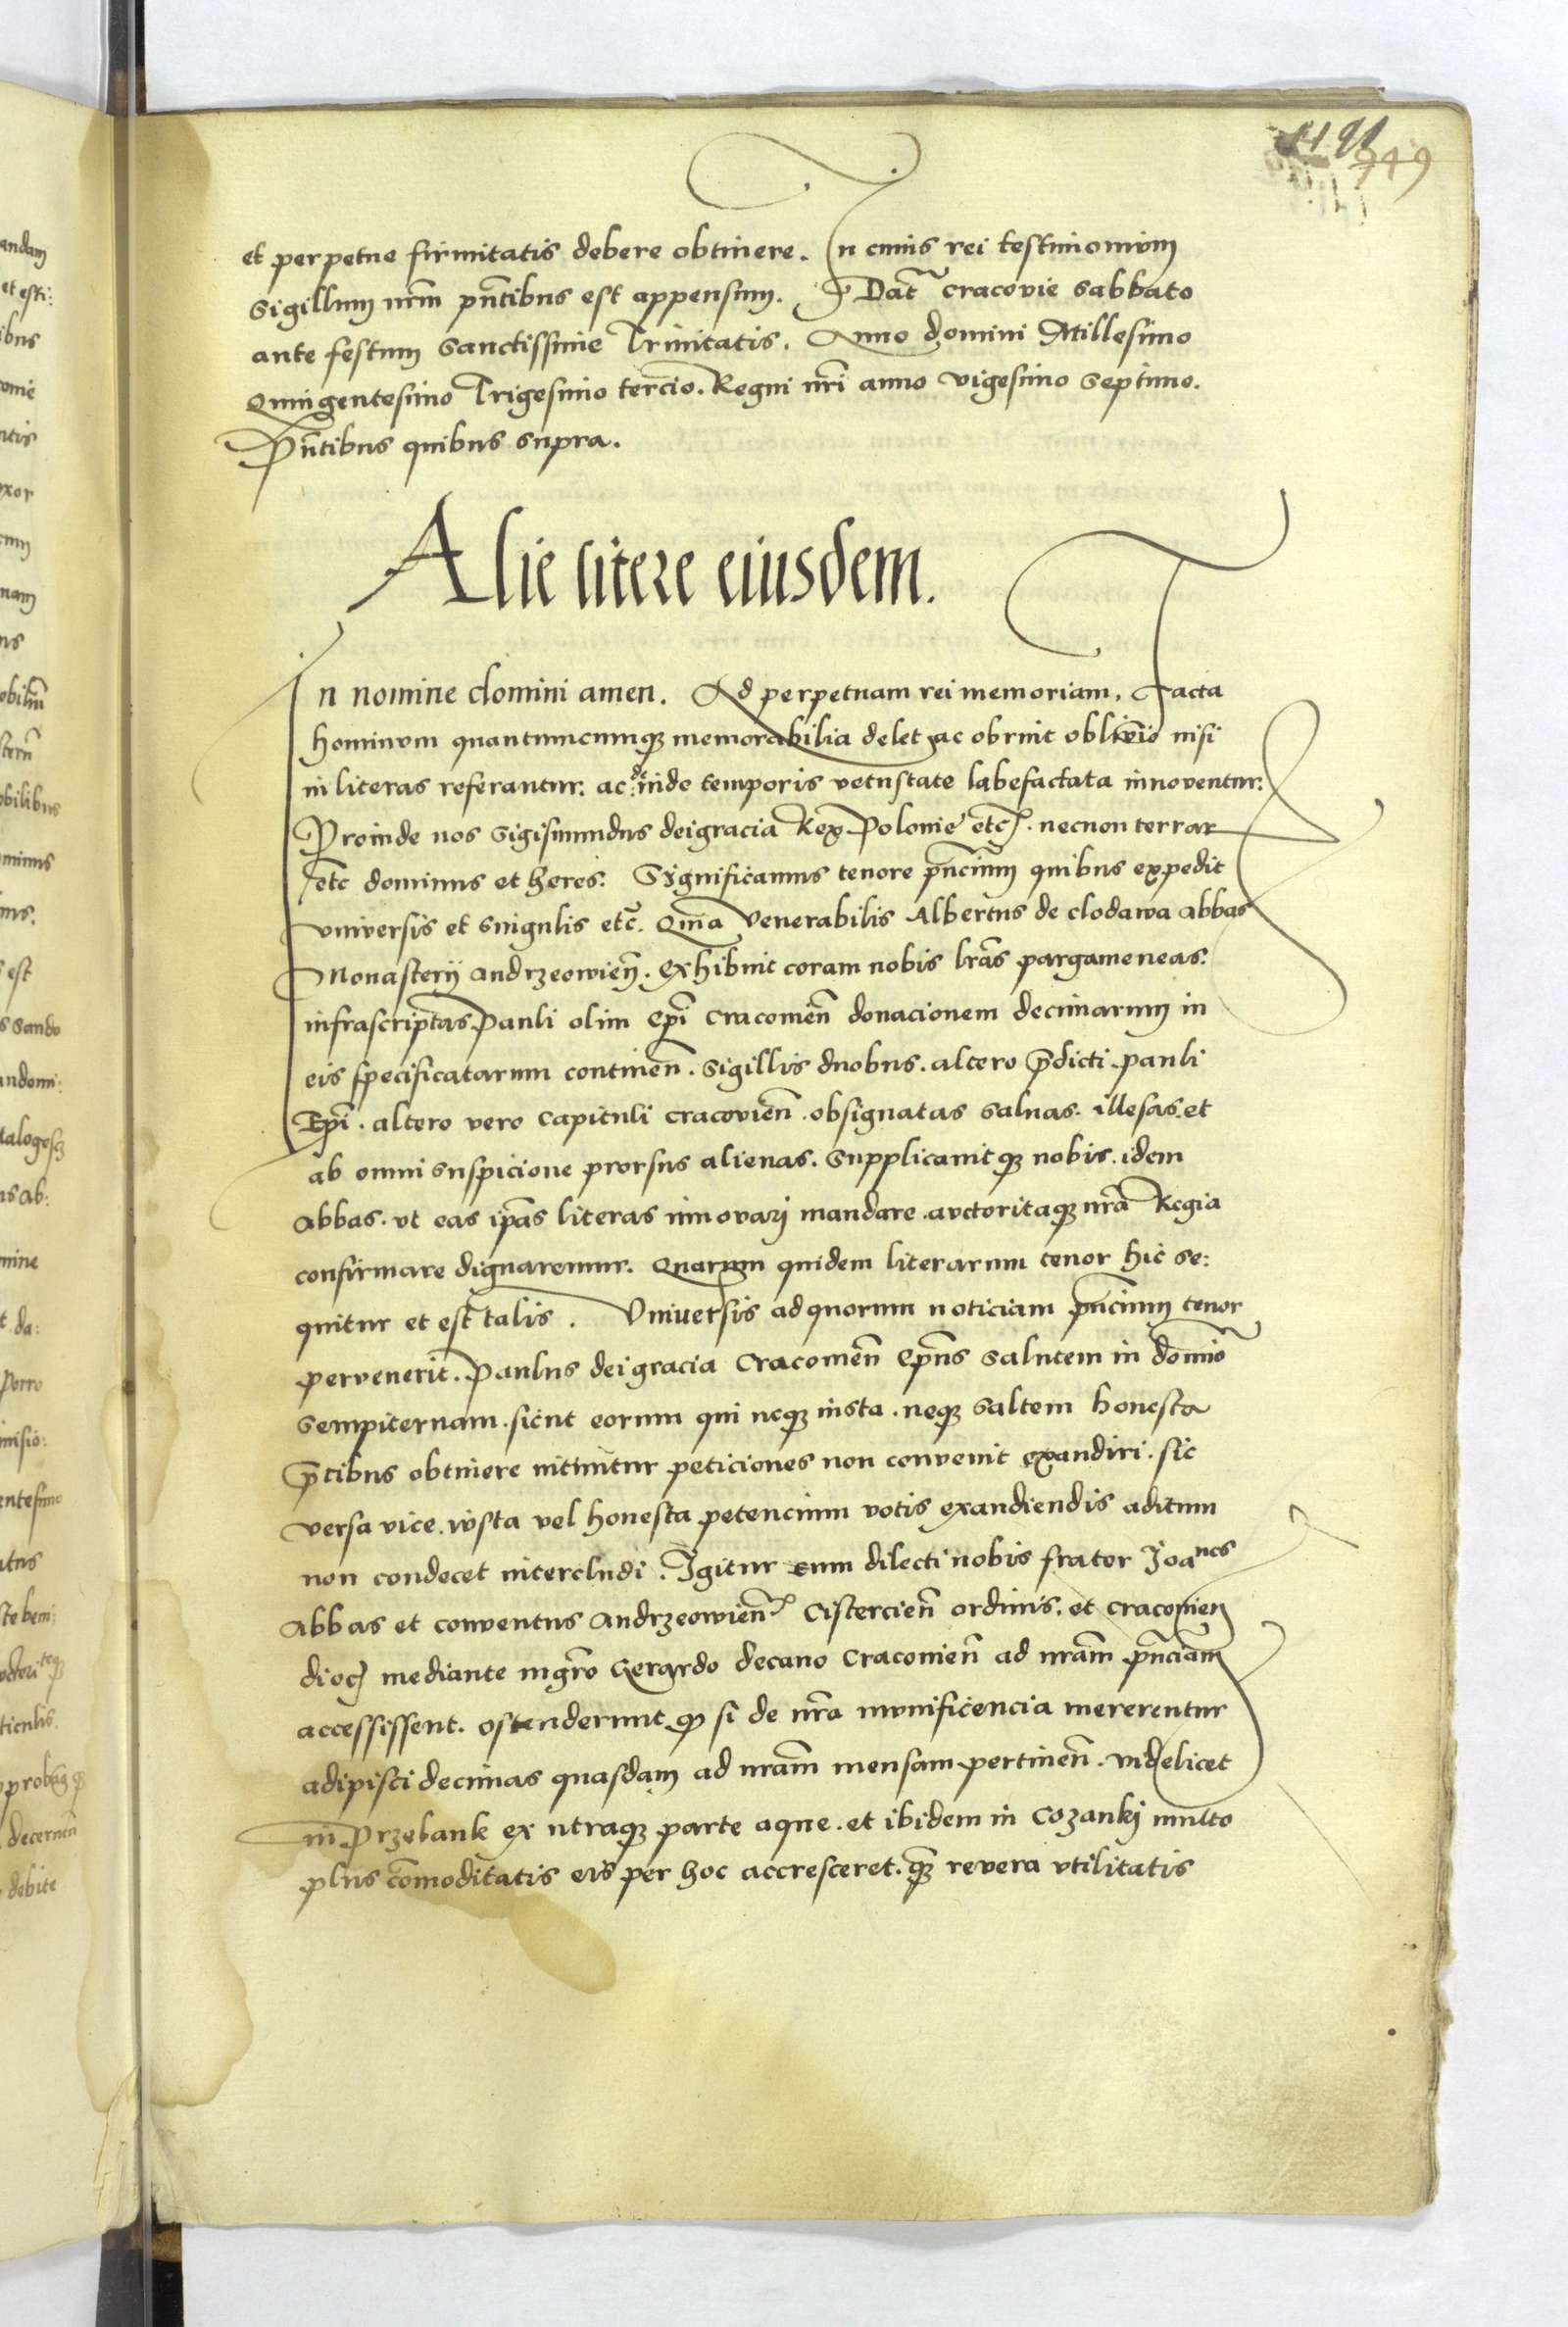 749
et perpetue firmitatis debere obtinere. In cuius rei testimonium
Sigillum nr̃m pñtibus est appensum. Dat̃ Cracovie Sabbato
ante festum Sanctissime Trinitatis. Anno Domini Millesimo
Quingentesimo Trigesimo tercio. Regni nr̃i anno vigesimo Septimo.
Pñtibus quibus supra.
Alie litere eiusdem.
In nomine domini amen. Ad perpetuam rei memoriam, Facta
hominum quantumcumqꝫ memorabilia delet ac obruit oblivio nisi
in literas referantur: ac deinde temporis vetustate labefactata innoventur.
Proinde nos Sigismundus dei gracia Rex Polonie etc̃. necnon terrar
etc dominus et heres. Significamus tenore pñcium quibus expedit
vniversis et singulis etc̃. Quia Venerabilis Albertus de clodawa abbas
Monasterij andrzeowieñ. exhibuit coram nobis lr̃as pargameneas.
infrascriptas Pauli olim ep̃i Cracouieñ donacionem decimarum in
eis specificatarum contineñ. Sigillis duobus. altero p̃dicti pauli
Ep̃i. altero vero Capituli Cracovieñ. obsignatas saluas. illesas. et
ab omni suspicione prorsus alienas. Supplicauitqꝫ nobis. idem
abbas. vt eas ip̃as literas innovarj mandare. auctoritaqꝫ nr̃a Regia
confirmare dignaremur. Quarum quidem literarum tenor hic se:
quitur et est talis. Vniuersis ad quorum noticiam pñcium tenor
pervenerit. Paulus dei gracia Cracouieñ ep̃us salutem in domino
sempiternam. sicut eorum qui neqꝫ iusta. neqꝫ saltem honesta
p̃cibus obtinere nituntur peticiones non convenit exaudiri. sic
versa vice. iusta vel honesta petencium votis exaudiendis aditum
non condecet intercludi. Igitur cum dilecti nobis frater Joannes
abbas et conventus andrzeowieñ Cistercieñ ordinis. et Cracouien
dioc̃ mediante mgr̃o Gerardo decano Cracouieñ ad nr̃am pñciam
accessissent. ostenderunt qꝫ si de nr̃a munificencia mererentur
adipisci decimas quasdam ad nr̃am mensam pertineñ. videlicet
in Przebank ex utraqꝫ parte aque. et ibidem in Cozankj multo
plus com̃oditatis eis per hoc accresceret. qꝫ revera vtilitatis